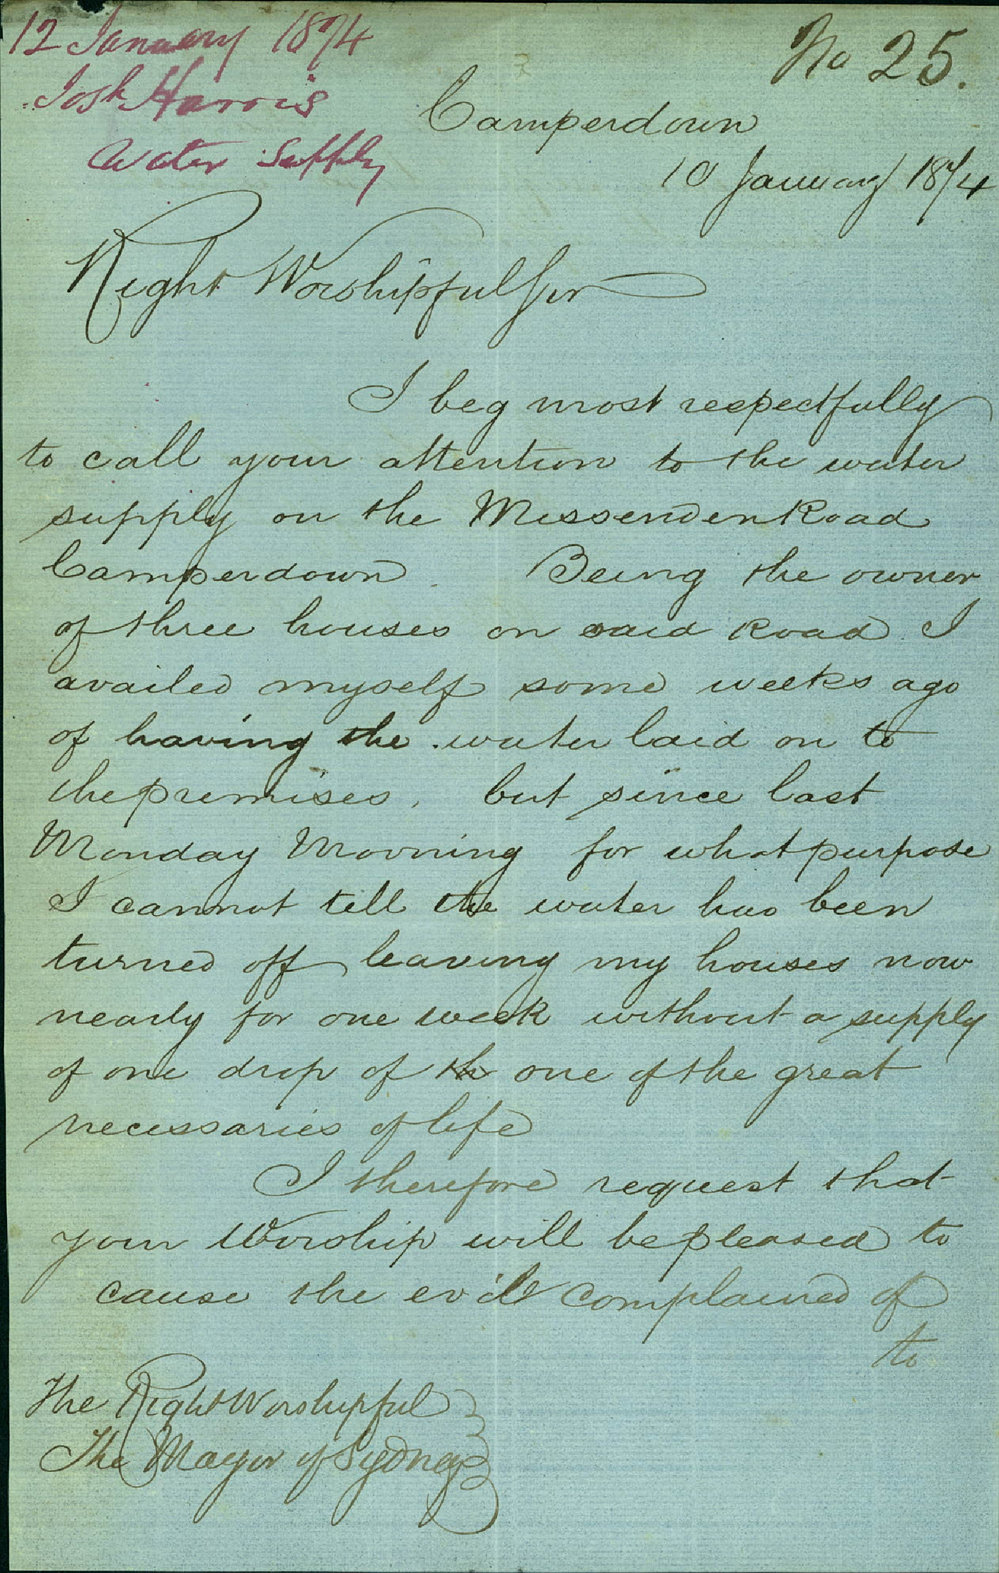 12 January 1874
No 25.
Josh Harris
Water Supply
Camperdown
10 January 1874
Right Worshipful Sir
I beg most respectfully
to call your attention to the water
supply on the Missenden Road
Camperdown. Being the owner
of three houses on said Road I
availed myself some weeks ago
of having the water laid on to
the premises. but since last
Monday Morning for what purpose
I cannot tell the water has been
turned off leaving my houses now
nearly for one week without a supply
of one drop of th one of the great
necessaries of life
I therefore request that
your Worship will be pleased to
cause the evil complained of
to
The Right Worshipful
The Mayor of Sydney